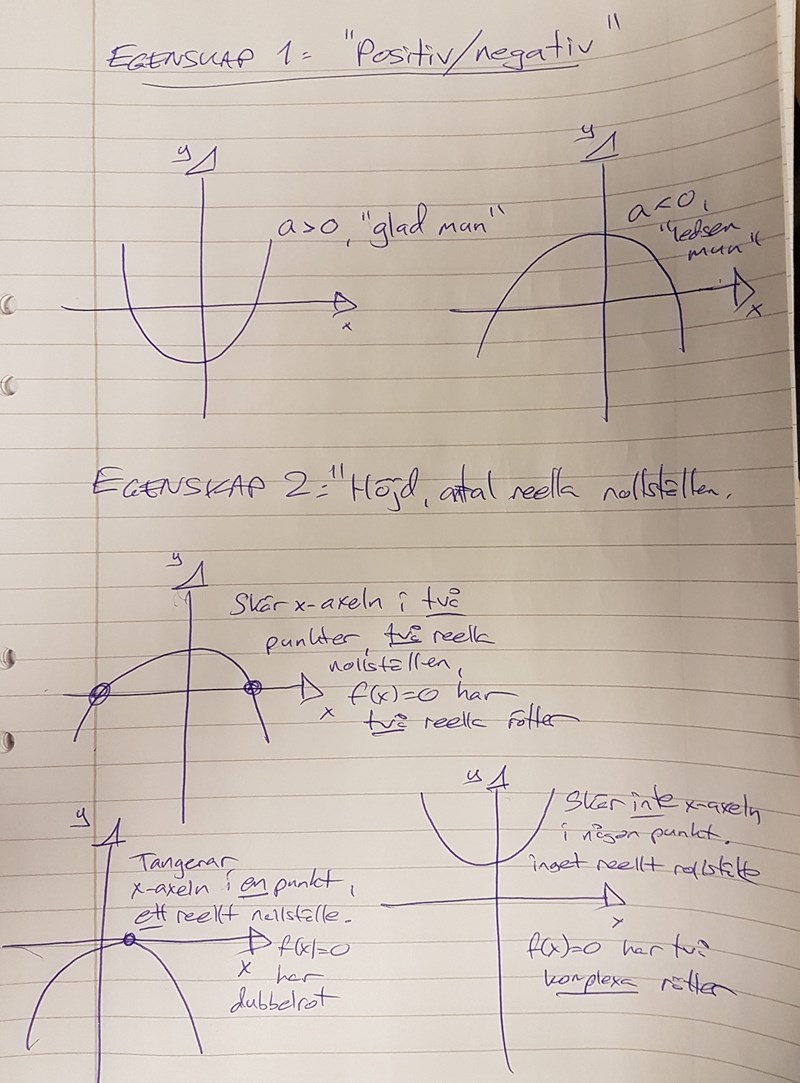 EGENSKAP 1= "Positiv/negativ"
y
a>0, "glad mun"
x
y
a<0,
"ledsen
mun"
x
EGENSKAP 2="Höjd, antal reella nollställen.
y
Skär x-axeln i två
punkter, två reella
nollställen,
f(x)=0 har
två reella rötter
x
y
Tangerar
x-axeln i en punkt,
ett reellt nollställe.
f(x)=0
har
dubbelrot
x
y
Skär inte x-axeln
i någon punkt.
inget reellt nollställe
x
f(x)=0 har två
komplexa rötter